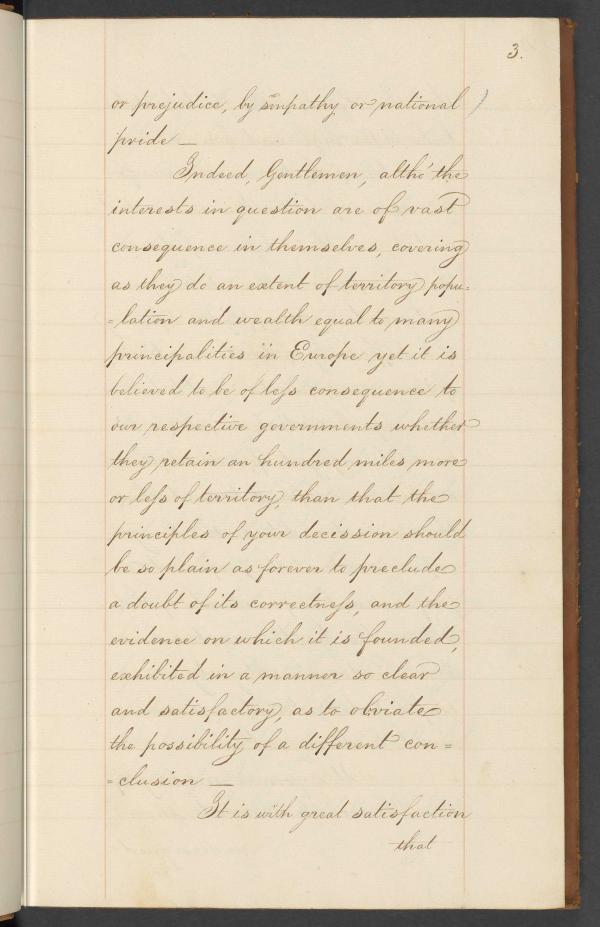 3.
or prejudice, by simpathy or national
pride —
Indeed, Gentlemen, altho' the
interests in question are of vast
consequence in themselves, covering
as they do an extent of territory popu=
=lation and wealth equal to many
principalities in Europe yet it is
believed to be of less consequence to
our respective governments whether
they retain an hundred miles more
or less of territory, than that the
principles of your decission should
be so plain as forever to preclude
a doubt of its correctness, and the
evidence on which it is founded,
exhibited in a manner so clear
and satisfactory, as to obviate
the possibility of a different con=
=clusion —
It is with great satisfaction
that